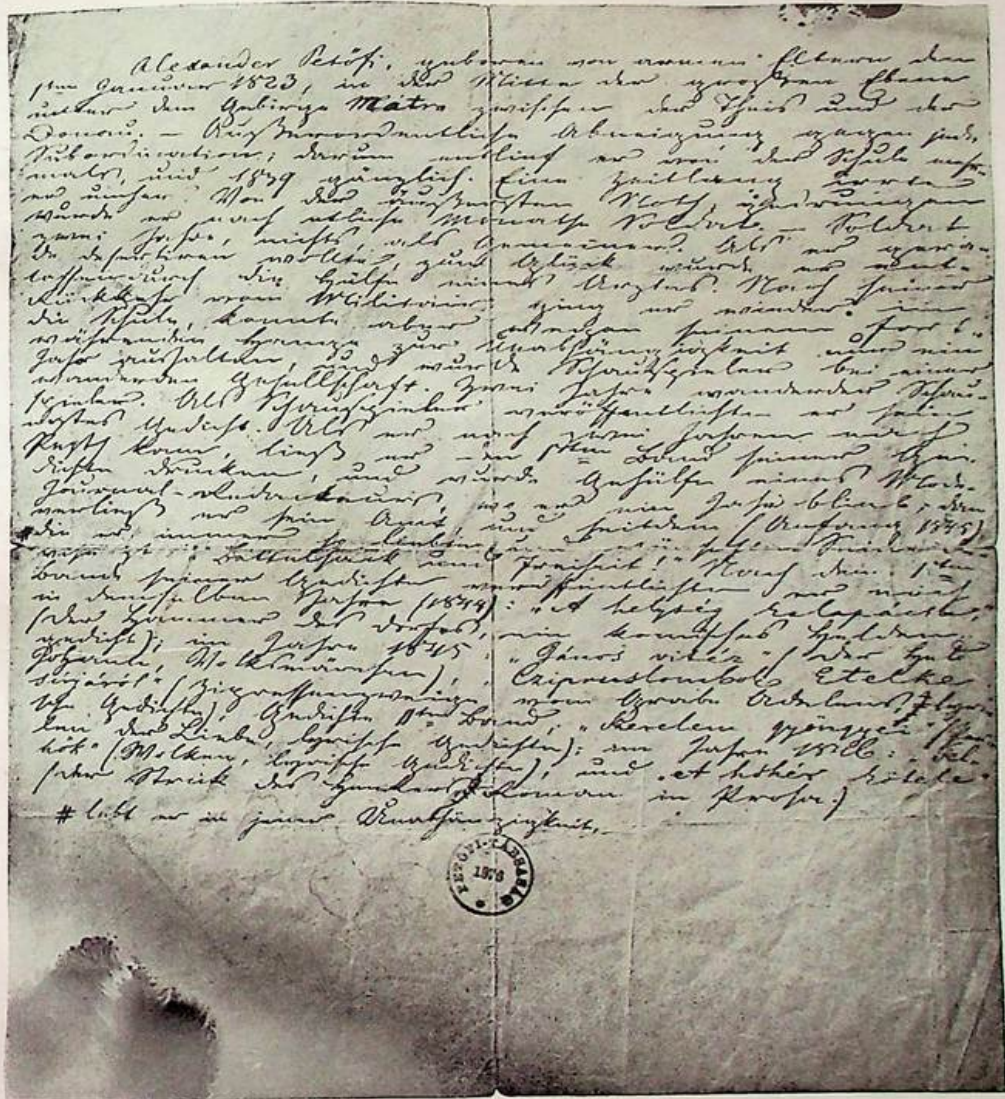 Alexander Petőfi, geboren von armen Eltern den
1ten Januar 1823, in der Mitte der großen Ebene
unter dem Gebirge Mátra zwischen der Theis und der
Donau. – Außerordentliche Abneigung gegen jede
Subordination; darum entlief er von der Schule mehr-
mals, und 1839 gänzlich. Eine Zeitlang irrte
er umher. Von der äußersten Noth gezwungen
wurde er nach etliche Monathe Soldat. – Soldat
zwei Jahre, nichts, als Gemeiner. Als er gera-
de desertiren wollte, zum Glück wurde er ent-
lassen durch die Hülfe eines Arztes. Nach seiner
Rückkehr vom Militair ging er wieder in
die Schule, konnte aber wegen seinem fort-
währenden Hange zur Unabhängigkeit nur ein
Jahr aushalten, und wurde Schauspieler bei einer
wandernden Gesellschaft. Zwei Jahre wandernder Schau-
spieler. Als Schauspieler veröffentlichte er sein
erstes Gedicht. Als er nach zwei Jahren nach
Pesth kam, ließ er den 1ten Band seiner Ge-
dichte drucken, und wurde Gehülfe eines Mode-
Journal-Redacteurs, wo er ein Jahr blieb; dann
verließ er sein Amt, und seitdem (Anfang 1845)
die er immer so
Bettelsack und Freiheit! Nach dem 1ten
Bande seiner Gedichte veröffentlichte er noch
in demselben Jahre (1844): „A helység kalapácsa“
(der Hammer des Dorfes, ein komisches Helden-
gedicht); im Jahre 1845: „János vitéz“ (der Held
Johann, Volksmärchen), Czipruslombok Etelke
sírjáról“ (Zipressenzweige vom Grabe Etelkens, lyri-
sche Gedichte), Gedichte IIter Band, „Szerelem gyöngyei“ (Per-
len der Liebe, lyrische Gedichte); im Jahre 1846: „Fel-
hők“ (Wolken, lyrische Gedichte), und „A hóhér kötele“
(der Strick des Henkers, Roman in Prosa.)
# lebt er in jener Unabhängigkeit,
PETŐFI-TÁRSASÁG
1876